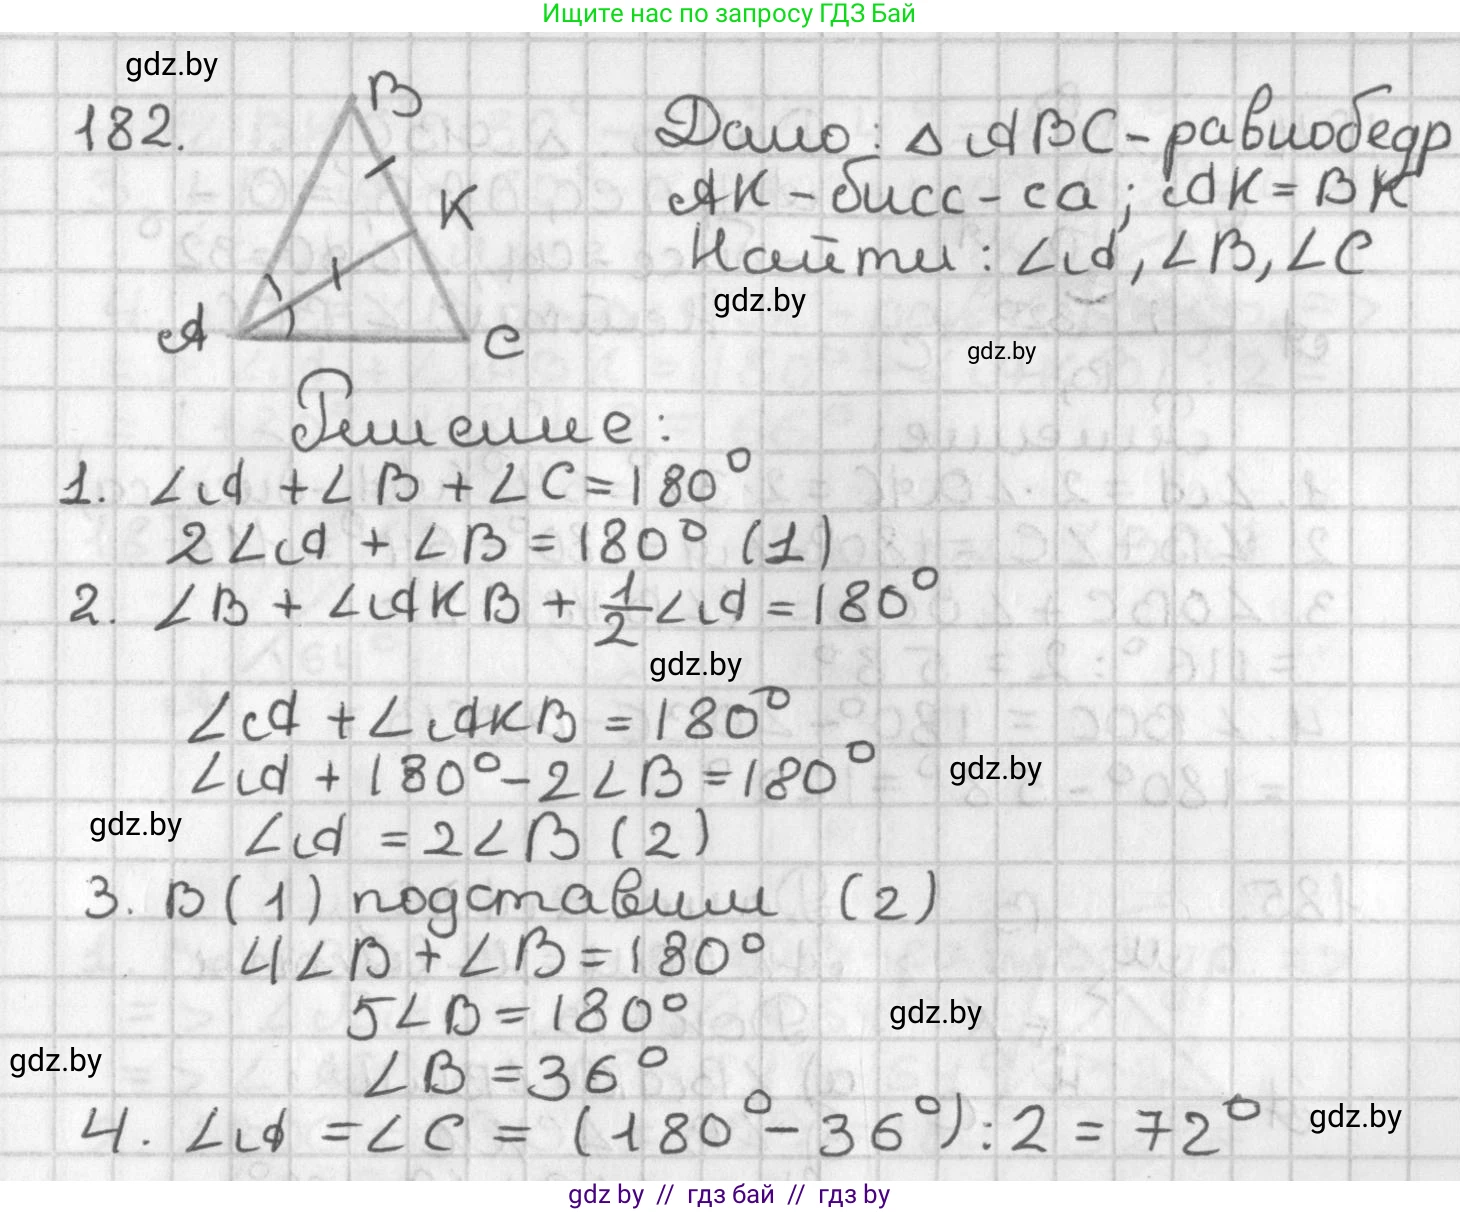 Ищите нас по запросу ГДЗ Бай
gdz.by
182.
B
K
A
C
Дано: △ ABC - равнобедр
AK - бисс-са; AK = BK
Найти: ∠A, ∠B, ∠C
gdz.by
gdz.by
Решение:
1. ∠A + ∠B + ∠C = 180°
2∠A + ∠B = 180° (1)
2. ∠B + ∠AKB + 1/2 ∠A = 180°
gdz.by
∠A + ∠AKB = 180°
∠A + 180° - 2∠B = 180°
gdz.by
gdz.by
∠A = 2∠B (2)
3. В (1) подставим (2)
4∠B + ∠B = 180°
5∠B = 180°
gdz.by
gdz.by
∠B = 36°
4. ∠A = ∠C = (180° - 36°) : 2 = 72°
gdz.by
gdz by // гдз бай // гдз by